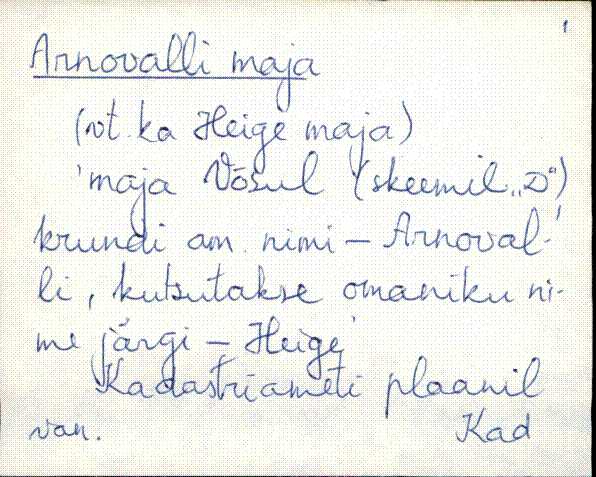 1
Arnovalli maja
(vt. ka Heige maja)
'maja Võsul (skeemil „D“)
krundi am. nimi – Arnoval-
li, kutsutakse omaniku ni-
me järgi – Heige'
Kadastriameti plaanil
van. Kad